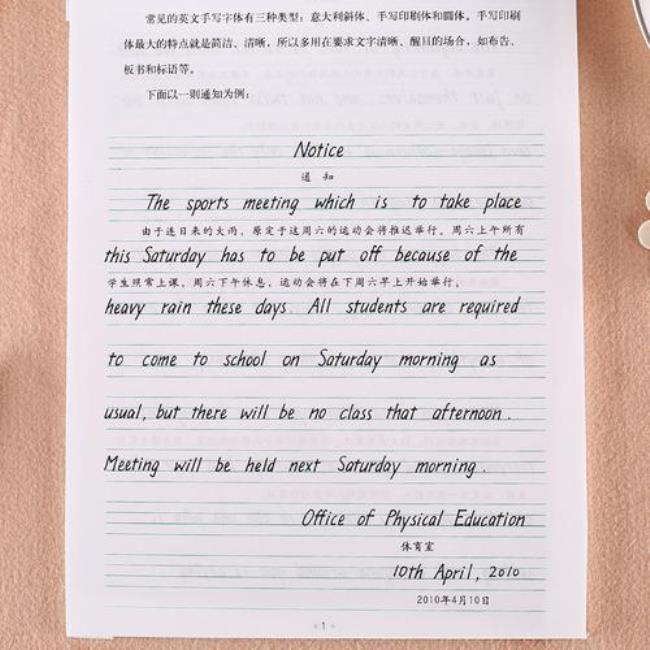 常见的英文手写字体有三种类型：意大利斜体、手写印刷体和圆体。手写印刷
体最大的特点就是简洁、清晰，所以多用在要求文字清晰、醒目的场合，如布告、
板书和标语等。
下面以一则通知为例：
Notice
通 知
The sports meeting which is to take place
由于连日来的大雨，原定于这周六的运动会将推迟举行。周六上午所有
this Saturday has to be put off because of the
学生照常上课。周六下午休息，运动会将在下周六早上开始举行。
heavy rain these days. All students are required
to come to school on Saturday morning as
usual, but there will be no class that afternoon.
Meeting will be held next Saturday morning.
Office of Physical Education
体育室
10th April, 2010
2010年4月10日
1